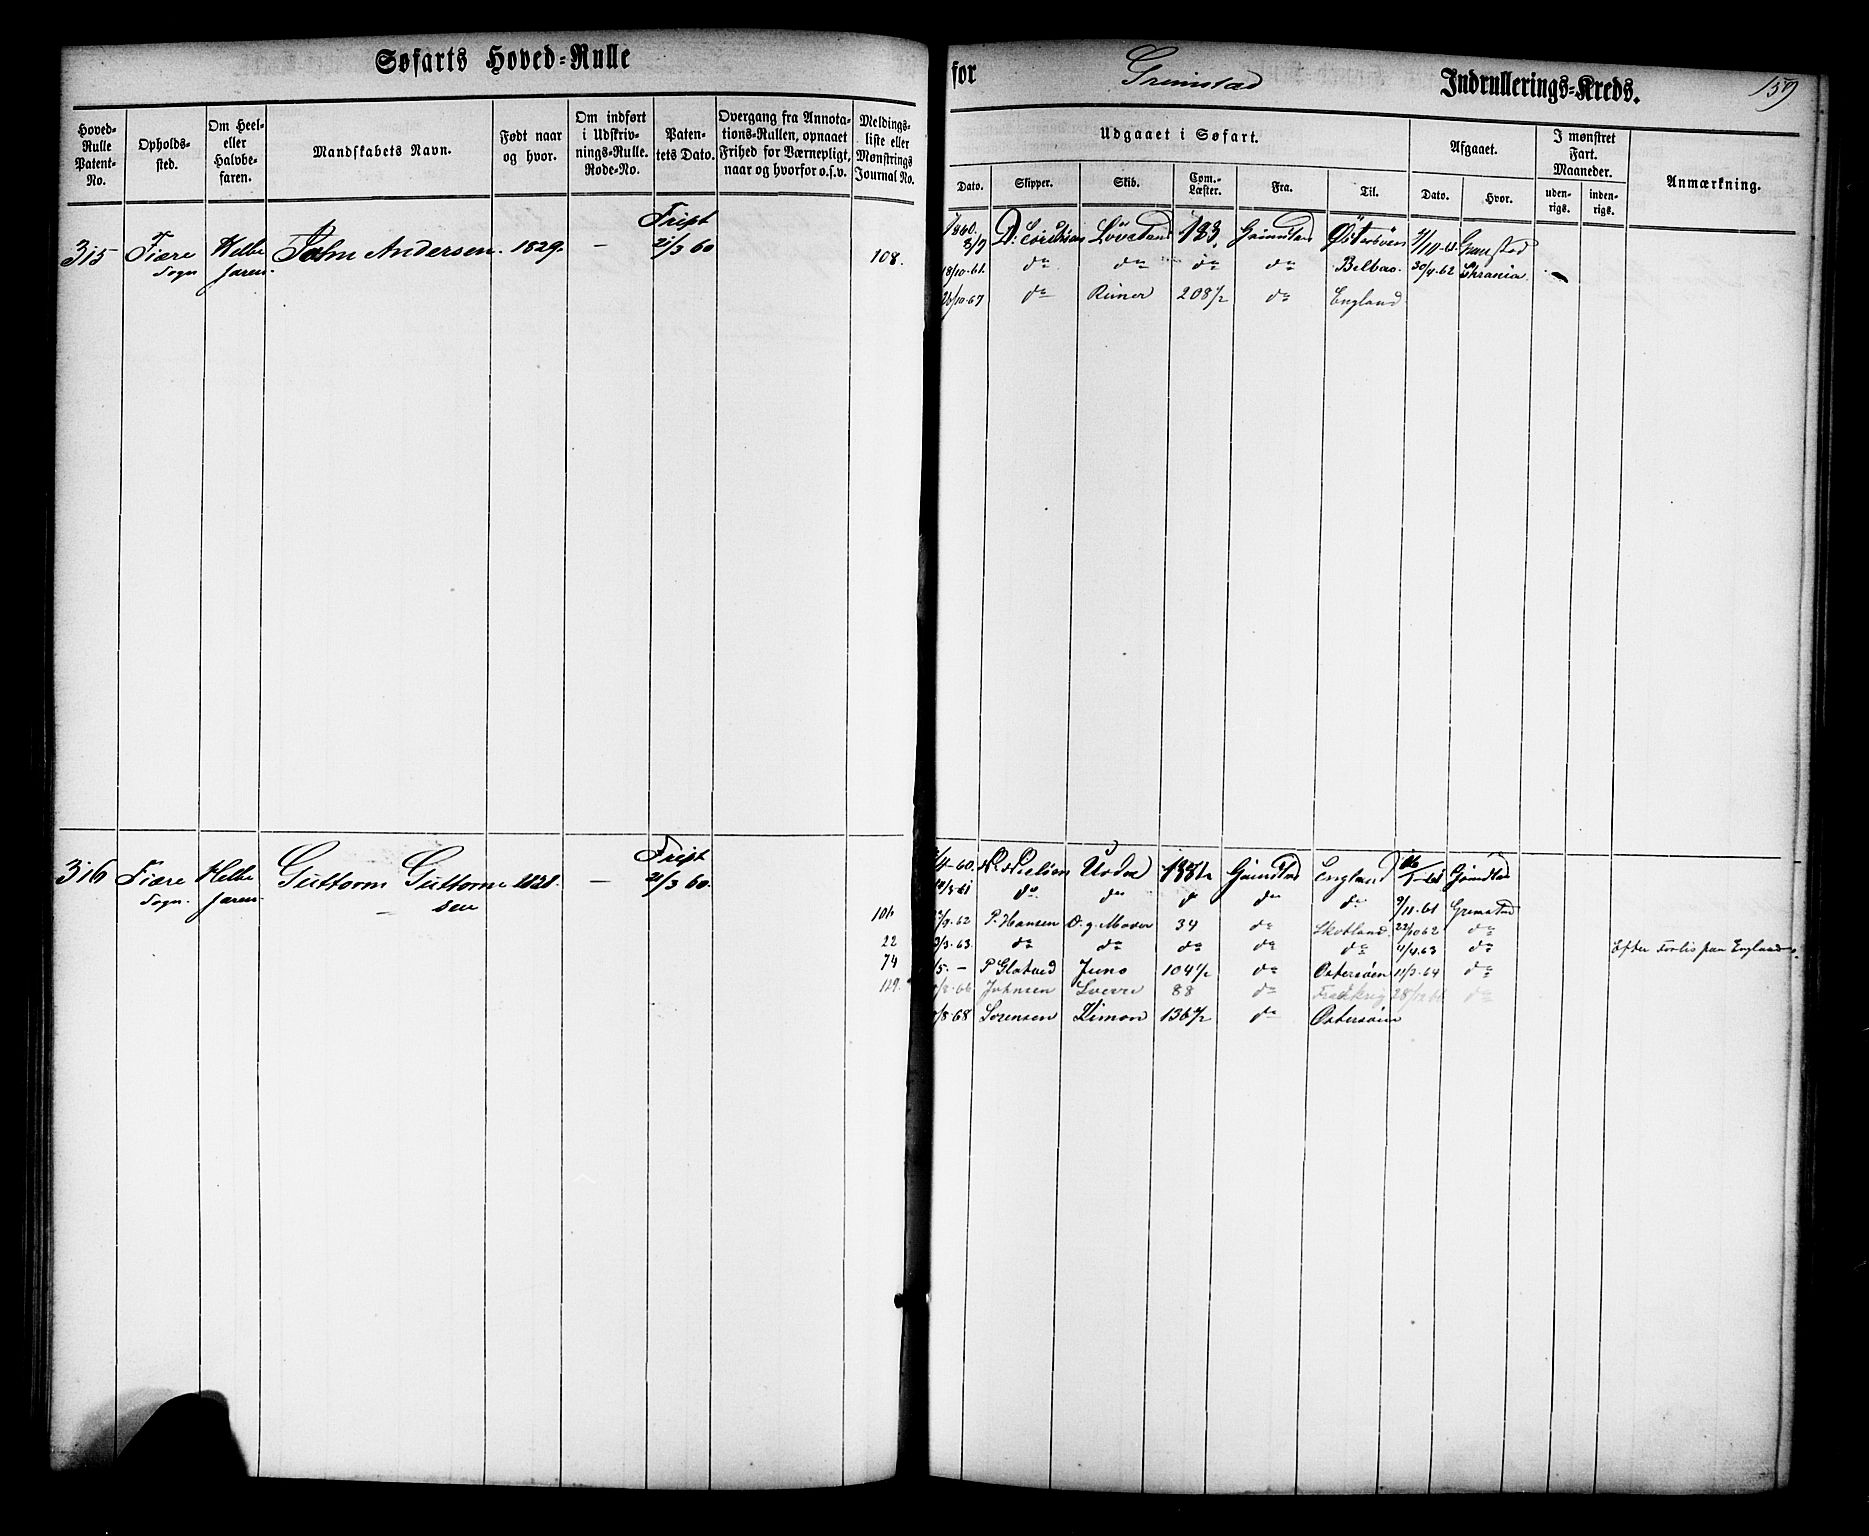 Søfarts Hoved-Rulle
for Grimstad Indrullerings-Kreds. 159
Hoved-Rulle Patent-No.
Opholds-sted.
Om Heel- eller Halvbe-faren.
Mandskabets Navn.
Født naar og hvor.
Om indført i Udskriv-nings-Rulle. Rode-No.
Paten-tets Dato.
Overgang fra Annota-tions-Rullen, opnaaet Frihed for Værnepligt, naar og hvorfor o.s.v.
Meldings-liste eller Mønstrings Journal No.
Udgaaet i Søfart.
Dato. Skipper. Skib. Com.-Læster. Fra. Til.
Afgaaet.
Dato. Hvor.
I mønstret Fart. Maaneder.
uden-rigs. inden-rigs.
Anmærkning.
Frist
315 Fiære Sogn Helbefaren John Andersen. 1829. — 21/3 60
1860. 2/7 133 Grimstad Østersøen Grimstad
108. 18/10-61. do do do do Bilbao. 30/4-62
26/10-67 do 208 1/2 do England
Frist
316 Fiære Sogn. Helbefaren Guttorm Guttormsen — 21/3 60.
4-60 Nielsen Grimstad England Grimstad
do do do do 9/11-61 Grimstad
106 62 P. Hansen 34 do Skotland. 22/10 62 do
22 3-63. do do do do do 4/4.63 do Efter Forlis paa England.
74 5. — Juno 104 1/2 do Østersøen 11/3-64 do
129. Johnsen 88 do do
8-68 Sørensen 136 1/2 do Østersøen